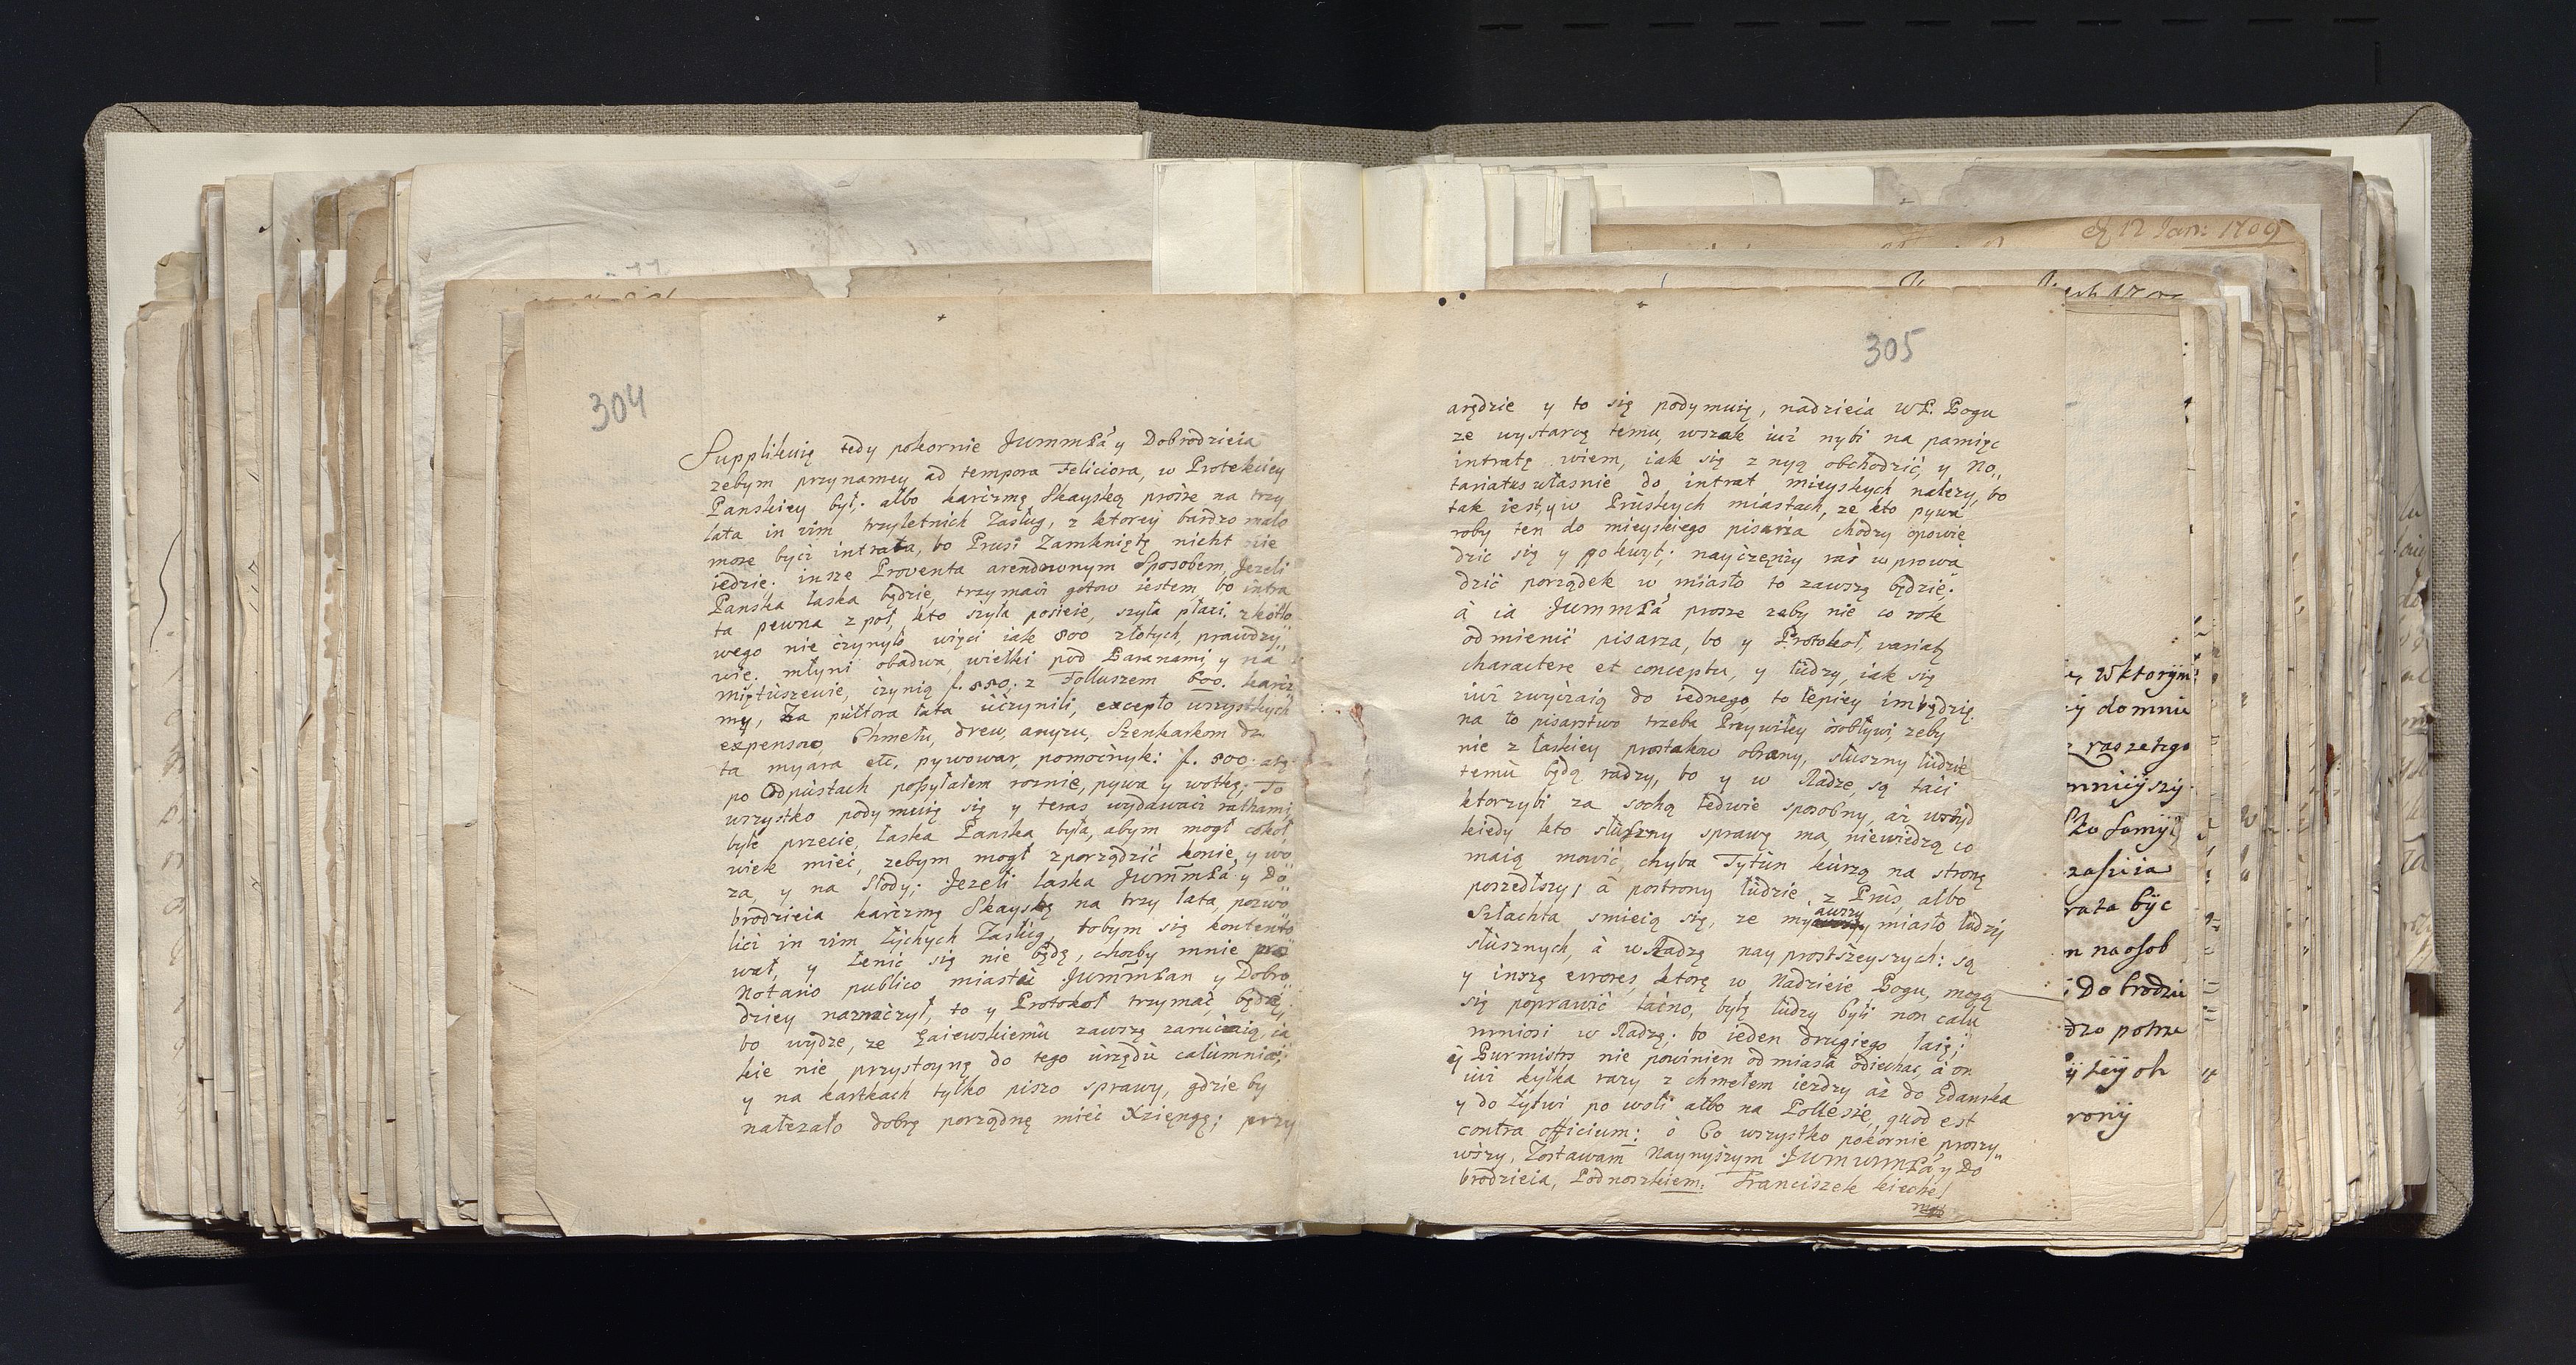 304
Supplikuię tedy pokornie JWMMPa y Dobrodzieia
zebym przynamey ad tempora Feliciora, w Protekciey
Panskiey był; albo karczmę Skayską proszę na trzy
lata in vim trzyletnich Zasług, z ktorey bardzo mało
moze byci intrata, bo Prusi Zamknięte nicht nie
iedzie: insze Proventa arendownym Sposobem, Jezeli
Panska łaska będzie, trzymaci gotow iestem, bo intra
ta pewna z pol, kto szyła posieie, szyla płaci, z kotło
wego nie czynyło więci iak 800 złotych, prawdzy„
wie. młyni obadwa, wielki pod Baranami, y na
miętuszewie, czynią f. 550; z Folluszem 600. karcz
my, Za pułtora lata uczynili, excepto wszystkych
expensow, Chmelu, drew, anyzu, Szenkarkom dr
ta myara etc, pywowar, pomocnyk: f. 800.
po Odpustach posyłałem roznie, pywa y wotkę; To
wszystko podymuię się y teras wydawaci rathami,
byłe przecie, łaska Panska była, abym mogł cokol
wiek mieć, zebym mogł zporządzić konie, y wo
za, y na Słody; Jezeli łaska JWMMPa y Do
brodzieia karczmę Skayskę na trzy lata, pozwo
lici in vim tychych Zasług, tobym się kontento
wał, y Lenić się nie będę, choćby mnie pro
Notario publico miasta JWMMPan y Dobro
dziey naznaczył, to y Protokoł trzymać będzie,
bo wydze, ze Gaiewskiemu zawszę zarucaią, ia
kie nie przystoynę do tego urzędu calumnie,
y na kartkach tylko piszo sprawy, gdzie by
nałezało dobrę porządnę mieć Xzięngę; przy
305
arędzie y to się podymuię, nadzieia WP. Bogu
ze wystarcę temu, wszak iuż nybi na pamięc
intratę wiem, iak się z nyą obchodzić, y No„
tariatus własnie do intrat mieyskych nałezy, bo
tak iest y w Pruskych miastach, ze kto pywa
roby ten do mieyskiego pisarza chodzy opowie
dzic się y po kwyt; nayczęnzy raz wprowa
dzić porządek w miasto to zawszę będzie;
à ia JWMMPa prosze zeby nie co rok
odmienić pisarza, bo y Protokoł, variatę
charactere et conceptu, y ludzy, iak się
iuż zwyczaią do iednego, to lepiey im będzię
na to pisarstwo trzeba Przywiley osobływi, zeby
nie z łaskiey prostakow obrany, słuszny ludzie
temu będą radzy, bo y w Radze, są taci
ktorzybi za sochą ledwie sposobny, aż wstyd
kiedy kto słuszny sprawę ma, niewiedzą co
maią mowić, chyba Tytun kurzą na stronę
poszedłszy, à postrony ludzie z Prus, albo
Szlachta smieią się, ze my awszy miasto ludzy
słusznych, à w Radzę nay prostszeyszych: są
y inszę errores, ktorę w Nadzieie Bogu, mogą
się poprawić łacno, byłę ludzy byli non calu
mniosi w Radzę; bo ieden drugiego łaię;
y Burmistrs nie powinien od miasta odiechac, à on
iuż kylka razy z chmelem iezdzy aż do Gdanska
y do Łytwi po woli albo na Pollesie, quod est
contra officium: ò Co wszystko pokornie proszy„
wszy, Zostawam Naynyszym JWMMMPa y Do
brodzieia, Podnoszkiem. Franciszek Kiechel
mpp
17 Jan: 1709
wktorym
ij domnie
raszetzgo
mnieyszy
zasieia
rata byc
m na osob
Do brodzie
dzo potrze
rony